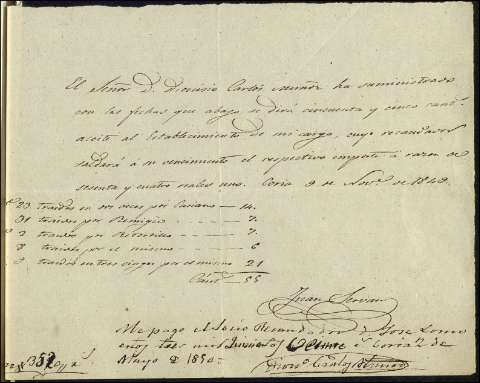 El Señor D. Dionisio Carlos Muñoz ha suministrado
con las fechas que abajo se dirá cincuenta y cinco cant.s
aceite al Establecimiento de mi cargo, cuyo recaudador
saldará a su vencimiento el respectivo importe á razon de
sesenta y cuatro reales uno. Coria 9 de Nov.e de 1849.
23 traidas en dos veces por Casiano — 14.
31 traidas por Remigio - - - 7.
2 traidas por - - - 7.
8 traidas por el mismo - - - 6
traidas en tres viages por el mismo 21
Cánt.s — 55
Juan Servan
Me pagó el Socio Recaudador D. Jose
tres mil quinientos Coria 2 de
Mayo D 1850=
Dion.o Carlos Muñoz